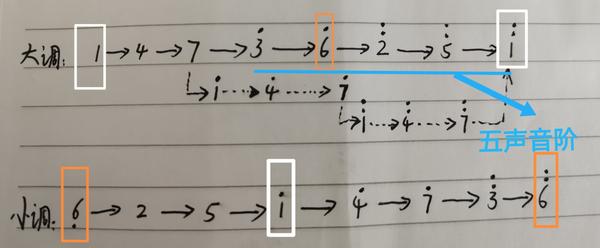 大调: 1→4→7→3̇→6̇→2̈→5̈→1⃛
↳1̇⋯→4̇⋯→7̇
↳1̈⋯→4̈⋯→7̈
五声音阶
小调: 6̣→2→5→1̇→4̇→7̇→3̈→6⃛